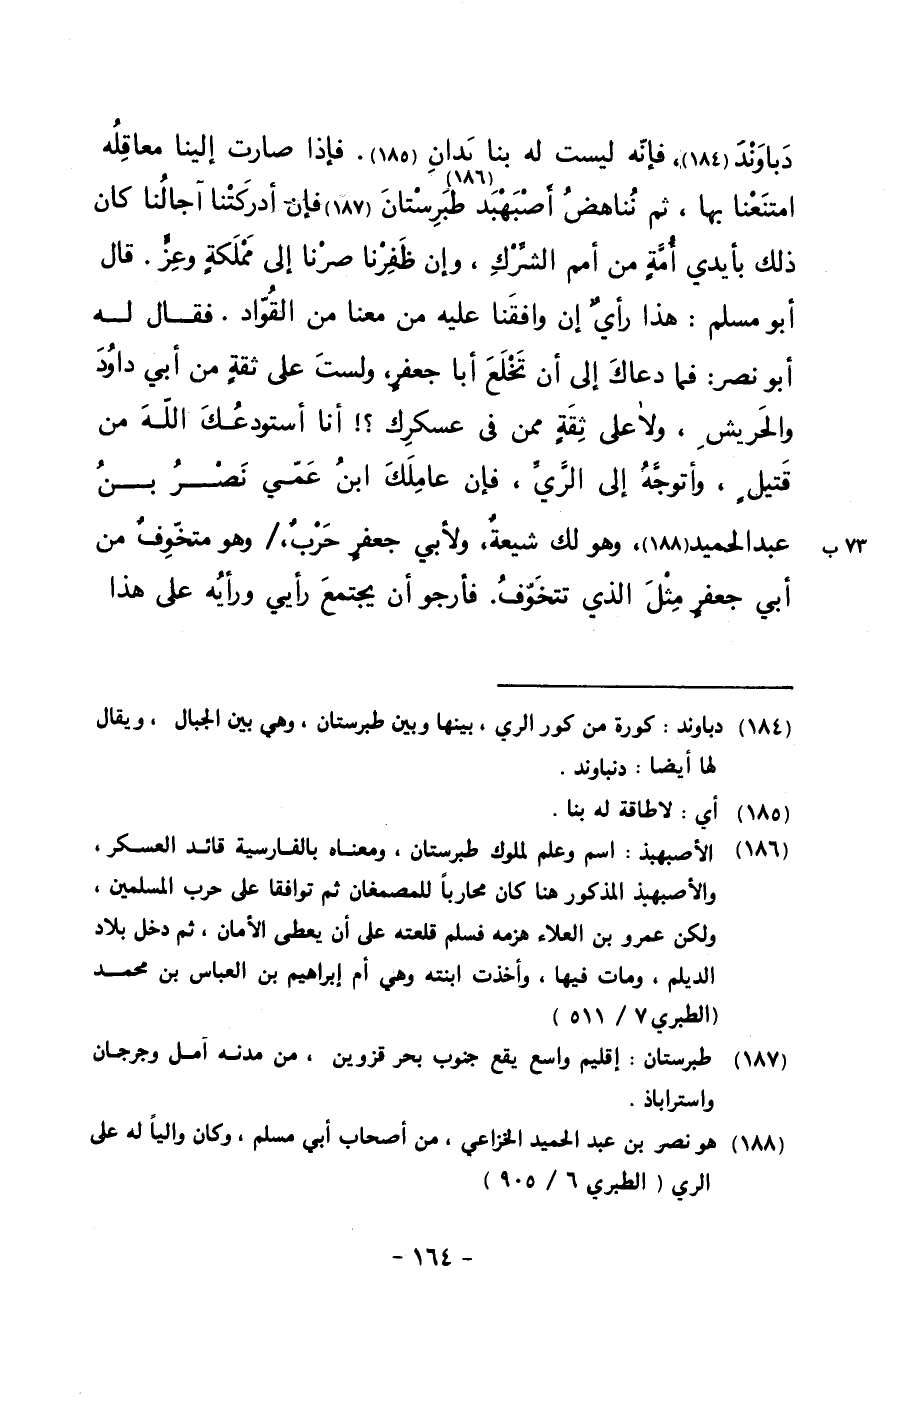 دَباوَنْدَ (١٨٤)، فإنّه ليست له بنا يَدانِ (١٨٥) . فإذا صارت إلينا معاقِلُه
امتنَعْنا بها ، ثم نُناهضُ أَصْبَهْبَذ (١٨٦) طَبَرِسْتانَ (١٨٧) فإن أدركَتْنا آجالُنا كان
ذلك بأيدي أُمَّةٍ من أمم الشرْكِ ، وإن ظَفِرْنا صرْنا إلى مَمْلَكةٍ وعِزٍّ . قال
أبو مسلم : هذا رأيٌ إن وافقَنا عليه من معنا من القُوّاد . فقـال لـه
أبو نصر: فما دعاكَ إلى أن تَخْلَعَ أبا جعفرٍ، ولستَ على ثقةٍ من أبي داوُدَ
والحَريشِ ، ولا على ثِقَةٍ ممن في عسكرِك ؟! أنا أستودعُـكَ اللّهَ من
قَتيلٍ ، وأتوجَّهُ إلى الرَّيِّ ، فإن عامِلَكَ ابنُ عَمّـي نَصْـرُ بـنُ
عبدالحميد(١٨٨)، وهو لك شيعةٌ، ولأبي جعفرٍ حَرْبٌ،/ وهو متخّوِفٌ من ٧٣ ب
أبي جعفرٍ مِثْلَ الذي تتخَوّفُ. فأرجو أن يجتمعَ رأيي ورأيُه على هذا
(١٨٤) دباوند : كورة من كور الري ، بينها وبين طبرستان ، وهي بين الجبال ، ويقال
لها أيضا : دنباوند .
(١٨٥) أي : لاطاقة له بنا .
(١٨٦) الأصبهبذ : اسم وعلم لملوك طبرستان ، ومعنـاه بالفـارسية قائـد العسـكر ،
والأصبهبذ المذكور هنا كان محارباً للمصمغان ثم توافقا على حرب المسلمين ،
ولكن عمرو بن العلاء هزمه فسلم قلعته على أن يعطى الأمان ، ثم دخل بلاد
الديلم ، ومات فيها ، وأخذت ابنته وهي أم إبراهيم بن العباس بن محمـد
(الطبري ٧ / ٥١١ )
(١٨٧) طبرستان : إقليم واسع يقع جنوب بحر قزوين ، من مدنـه آمـل وجرجـان
واستراباذ .
(١٨٨) هو نصر بن عبد الحميد الخزاعي ، من أصحاب أبي مسلم ، وكان والياً له على
الري ( الطبري ٦ / ٩٠٥ )
- ١٦٤ -